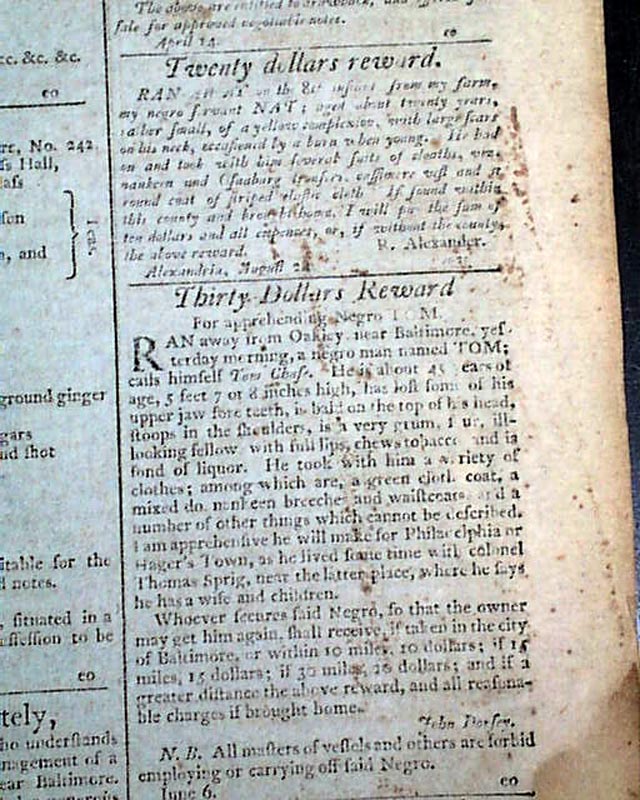 The above are entitled to drawback, and
sale for approved negotiable notes.
April 14. eo
Twenty dollars reward.
RAN on the 8th instant from my farm,
my negro servant NAT; aged about twenty years,
rather small, of a yellow complexion, with large scars
on his neck, occasioned by a burn when young. He had
on and took with him several suits of cloaths,
nankeen and Osnaburg trousers, cassimere vest and a
round coat of striped elastic cloth. If found within
this county and brought home, I will pay the sum of
ten dollars and all expences, or, if without the county,
the above reward. R. Alexander.
Alexandria, August
Thirty Dollars Reward
For apprehending Negro TOM.
RAN away from Oakley, near Baltimore, yes-
terday morning, a negro man named TOM;
calls himself Tom Chase. He is about 45 years of
age, 5 feet 7 or 8 inches high, has lost some of his
upper jaw fore teeth, is bald on the top of his head,
stoops in the shoulders, is a very grum, ill-
looking fellow with full lips, chews tobacco and is
fond of liquor. He took with him a variety of
clothes; among which are, a green cloth coat, a
mixed do. nankeen breeches and waistcoats, and a
number of other things which cannot be described.
I am apprehensive he will make for Philadelphia or
Hager's Town, as he lived some time with colonel
Thomas Sprig, near the latter place, where he says
he has a wife and children.
Whoever secures said Negro, so that the owner
may get him again, shall receive, if taken in the city
of Baltimore, or within 10 miles, 10 dollars; if 15
miles, 15 dollars; if 30 miles, 20 dollars; and if a
greater distance the above reward, and all reasona-
ble charges if brought home.
John Dorsey.
N. B. All masters of vessels and others are forbid
employing or carrying off said Negro.
June 6. eo
&c. &c. &c.
eo
No. 242
Hall,
Teas,
and
ground ginger
and shot
suitable for the
notes.
situated in a
possession to be
eo
who understands
management of a
near Baltimore.